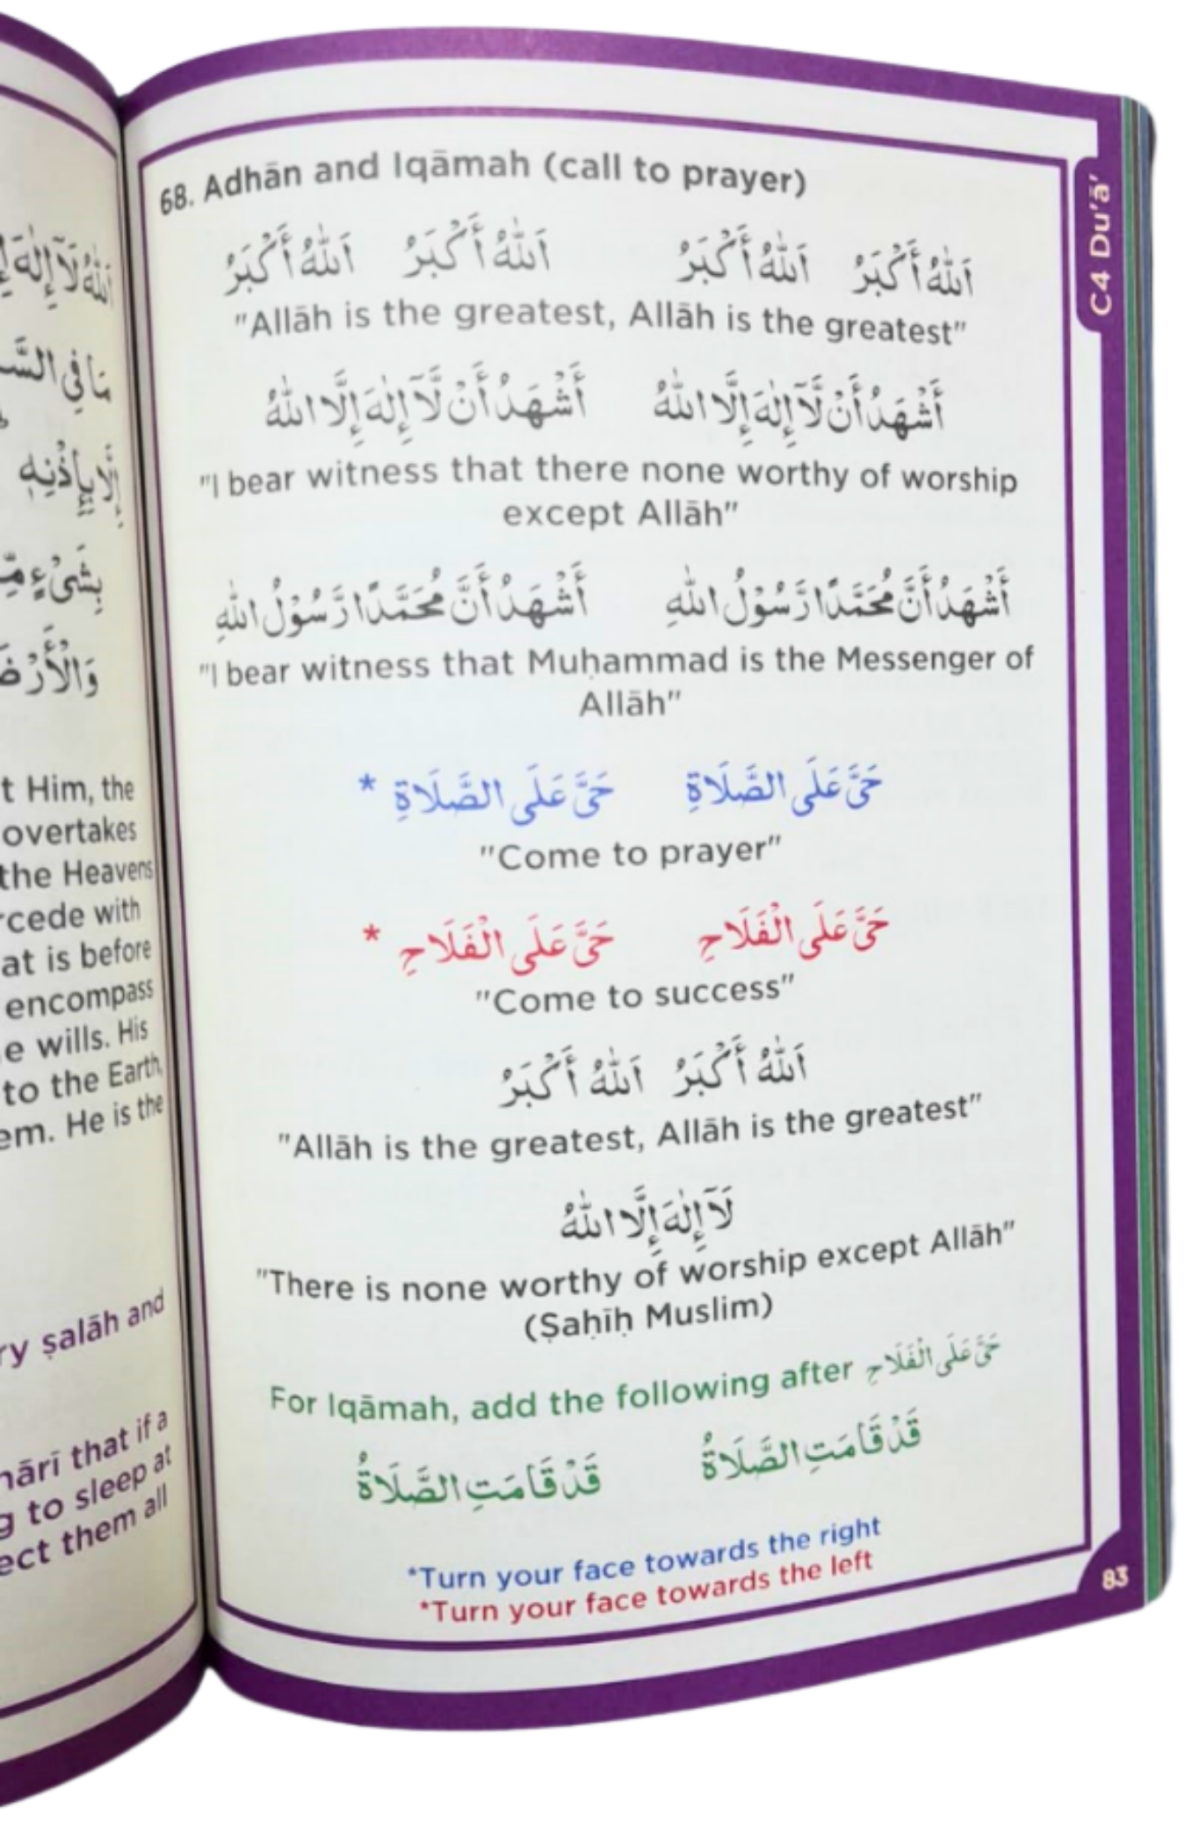 اَللّٰهُ لَآ إِلٰهَ
مَا فِي السَّ
إِلَّا بِإِذْنِهِ
بِشَيْءٍ مِّ
وَالْأَرْضَ
t Him, the
overtakes
the Heavens
rcede with
at is before
encompass
e wills. His
to the Earth,
em. He is the
ry ṣalāh and
hārī that if a
g to sleep at
ect them all
68. Adhān and Iqāmah (call to prayer)
اَللّٰهُ أَكْبَرُ اَللّٰهُ أَكْبَرُ اَللّٰهُ أَكْبَرُ اَللّٰهُ أَكْبَرُ
"Allāh is the greatest, Allāh is the greatest"
أَشْهَدُ أَنْ لَّآ إِلٰهَ إِلَّا اللّٰهُ أَشْهَدُ أَنْ لَّآ إِلٰهَ إِلَّا اللّٰهُ
"I bear witness that there none worthy of worship
except Allāh"
أَشْهَدُ أَنَّ مُحَمَّدًا رَّسُوْلُ اللّٰهِ أَشْهَدُ أَنَّ مُحَمَّدًا رَّسُوْلُ اللّٰهِ
"I bear witness that Muḥammad is the Messenger of
Allāh"
حَيَّ عَلَى الصَّلَاةِ حَيَّ عَلَى الصَّلَاةِ *
"Come to prayer"
حَيَّ عَلَى الْفَلَاحِ حَيَّ عَلَى الْفَلَاحِ *
"Come to success"
اَللّٰهُ أَكْبَرُ اَللّٰهُ أَكْبَرُ
"Allāh is the greatest, Allāh is the greatest"
لَآ إِلٰهَ إِلَّا اللّٰهُ
"There is none worthy of worship except Allāh"
(Ṣaḥīḥ Muslim)
For Iqāmah, add the following after حَيَّ عَلَى الْفَلَاحِ
قَدْ قَامَتِ الصَّلَاةُ قَدْ قَامَتِ الصَّلَاةُ
*Turn your face towards the right
*Turn your face towards the left
C4 Du'ā'
83